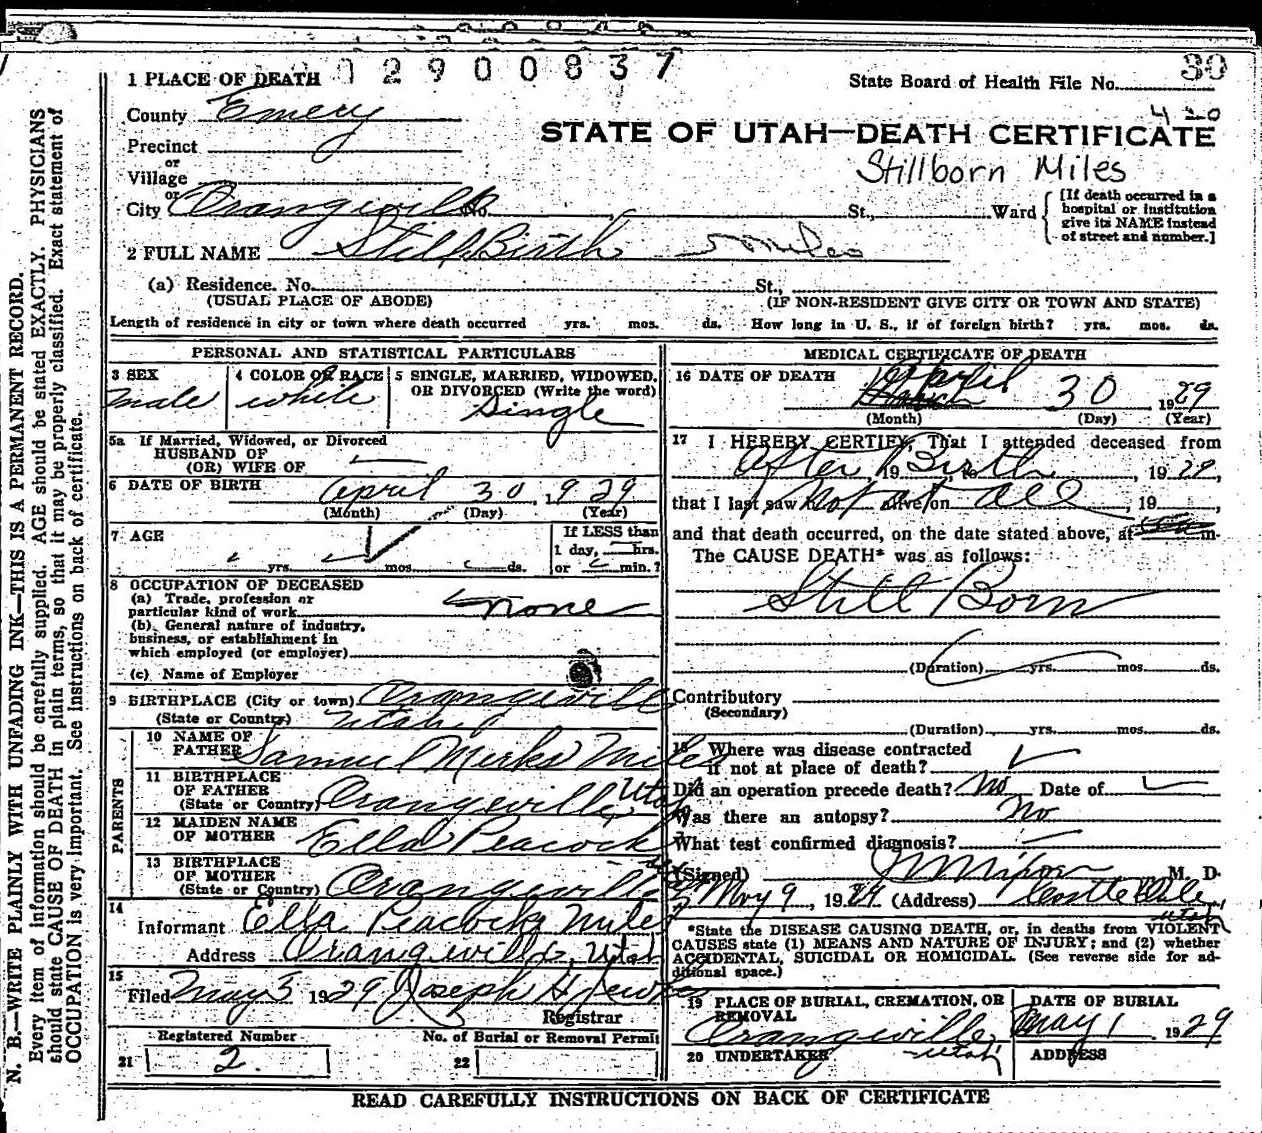 0 2 9 0 0 8 3 7
1 PLACE OF DEATH
State Board of Health File No. 30
County Emery
4 20
STATE OF UTAH—DEATH CERTIFICATE
Precinct
or
Village
Stillborn Miles
or
City Orangeville No. St., Ward
[If death occurred in a hospital or institution give its NAME instead of street and number.]
2 FULL NAME Still Birth Miles
(a) Residence. No. St.,
(USUAL PLACE OF ABODE) (IF NON-RESIDENT GIVE CITY OR TOWN AND STATE)
Length of residence in city or town where death occurred yrs. mos. ds. How long in U. S., if of foreign birth? yrs. mos. ds.
PERSONAL AND STATISTICAL PARTICULARS
3 SEX
male
4 COLOR OR RACE
white
5 SINGLE, MARRIED, WIDOWED,
OR DIVORCED (Write the word)
Single
5a If Married, Widowed, or Divorced
HUSBAND OF
(OR) WIFE OF
6 DATE OF BIRTH April 30, 1929
(Month) (Day) (Year)
7 AGE
yrs. mos. ds.
If LESS than
1 day, hrs.
or min.?
8 OCCUPATION OF DECEASED
(a) Trade, profession or
particular kind of work none
(b). General nature of industry,
business, or establishment in
which employed (or employer)
(c) Name of Employer
9 BIRTHPLACE (City or town) Orangeville
(State or Country) Utah
PARENTS
10 NAME OF
FATHER Samuel Merks Miles
11 BIRTHPLACE
OF FATHER
(State or Country) Orangeville Utah
12 MAIDEN NAME
OF MOTHER Ella Peacock
13 BIRTHPLACE
OF MOTHER
(State or Country) Orangeville
14
Informant Ella Peacock Miles
Address Orangeville, Utah
15
Filed May 5 1929 Joseph H
Registrar
Registered Number No. of Burial or Removal Permit
21 2. 22
MEDICAL CERTIFICATE OF DEATH
16 DATE OF DEATH April 30 1929
(Month) (Day) (Year)
17 I HEREBY CERTIFY, That I attended deceased from
After Birth, 19 to , 1929,
that I last saw h Not at all alive on , 19 ,
and that death occurred, on the date stated above, at m.
The CAUSE DEATH* was as follows:
Still Born
(Duration) yrs. mos. ds.
Contributory
(Secondary)
(Duration) yrs. mos. ds.
18 Where was disease contracted
if not at place of death?
Did an operation precede death? No Date of
Was there an autopsy? No
What test confirmed diagnosis?
(Signed) M. D.
May 9, 1929. (Address) Castle Dale, Utah
*State the DISEASE CAUSING DEATH, or, in deaths from VIOLENT
CAUSES state (1) MEANS AND NATURE OF INJURY; and (2) whether
ACCIDENTAL, SUICIDAL OR HOMICIDAL. (See reverse side for ad-
ditional space.)
19 PLACE OF BURIAL, CREMATION, OR
REMOVAL
Orangeville, Utah
DATE OF BURIAL
May 1 1929
20 UNDERTAKER
ADDRESS
READ CAREFULLY INSTRUCTIONS ON BACK OF CERTIFICATE
N. B.—WRITE PLAINLY WITH UNFADING INK—THIS IS A PERMANENT RECORD.
Every item of information should be carefully supplied. AGE should be stated EXACTLY. PHYSICIANS
should state CAUSE OF DEATH in plain terms, so that it may be properly classified. Exact statement of
OCCUPATION is very important. See instructions on back of certificate.